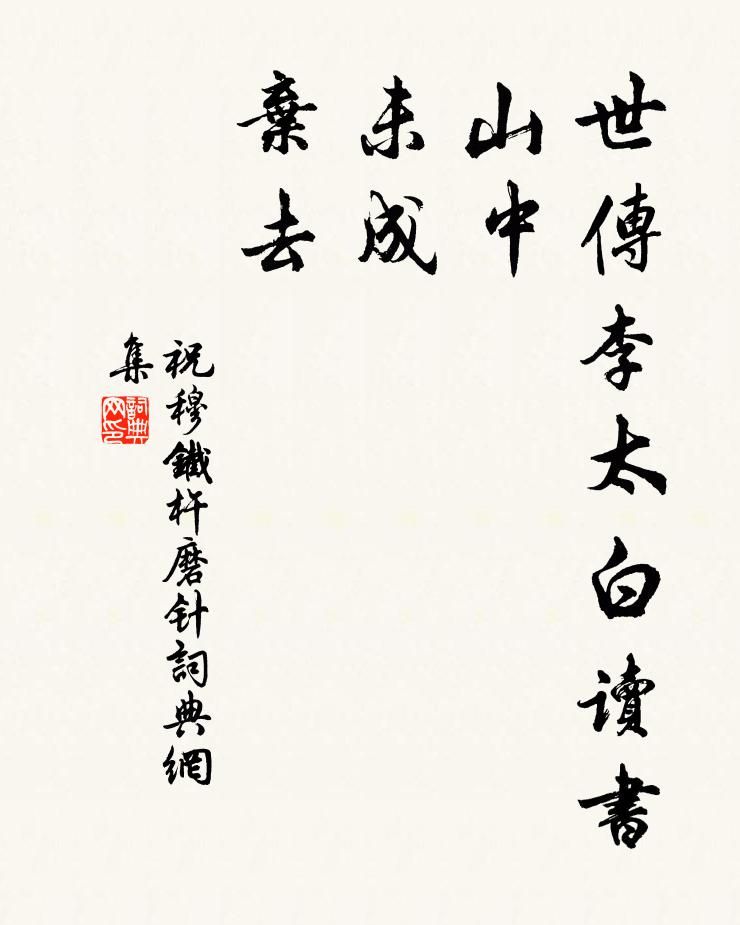 世傳李太白讀書
山中
未成
棄去
祝穆鐵杵磨针詞典網
集
詞典
网印